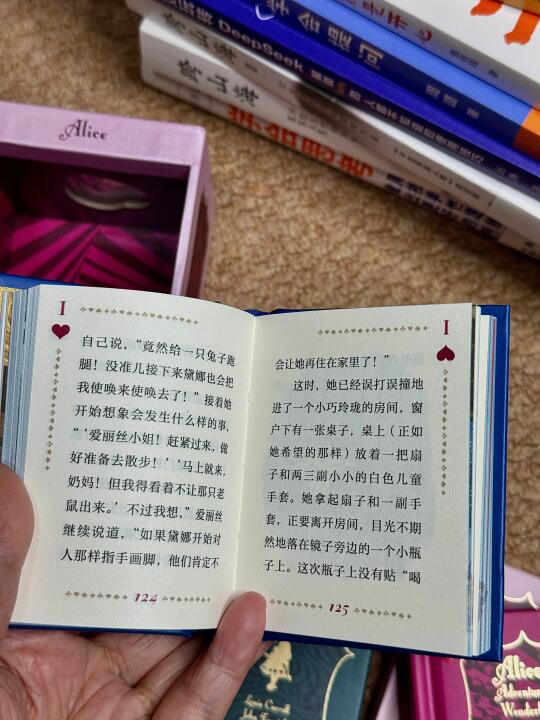 学会提问
周遊 著
DeepSeek
跨山海
学会思考
Alice
I
自己说，“竟然给一只兔子跑
腿！没准儿接下来黛娜也会把
我使唤来使唤去了！”接着她
开始想象会发生什么样的事，
“‘爱丽丝小姐！赶紧过来，做
好准备去散步！’‘马上就来，
奶妈！但我得看着不让那只老
鼠出来。’不过我想，”爱丽丝
继续说道，“如果黛娜开始对
人那样指手画脚，他们肯定不
124
I
会让她再住在家里了！”
这时，她已经误打误撞地
进了一个小巧玲珑的房间，窗
户下有一张桌子，桌上（正如
她希望的那样）放着一把扇
子和两三副小小的白色儿童
手套。她拿起扇子和一副手
套，正要离开房间，目光不期
然地落在镜子旁边的一个小瓶
子上。这次瓶子上没有贴“喝
125
Lewis Carroll
Alice
Adventur
Wonderl